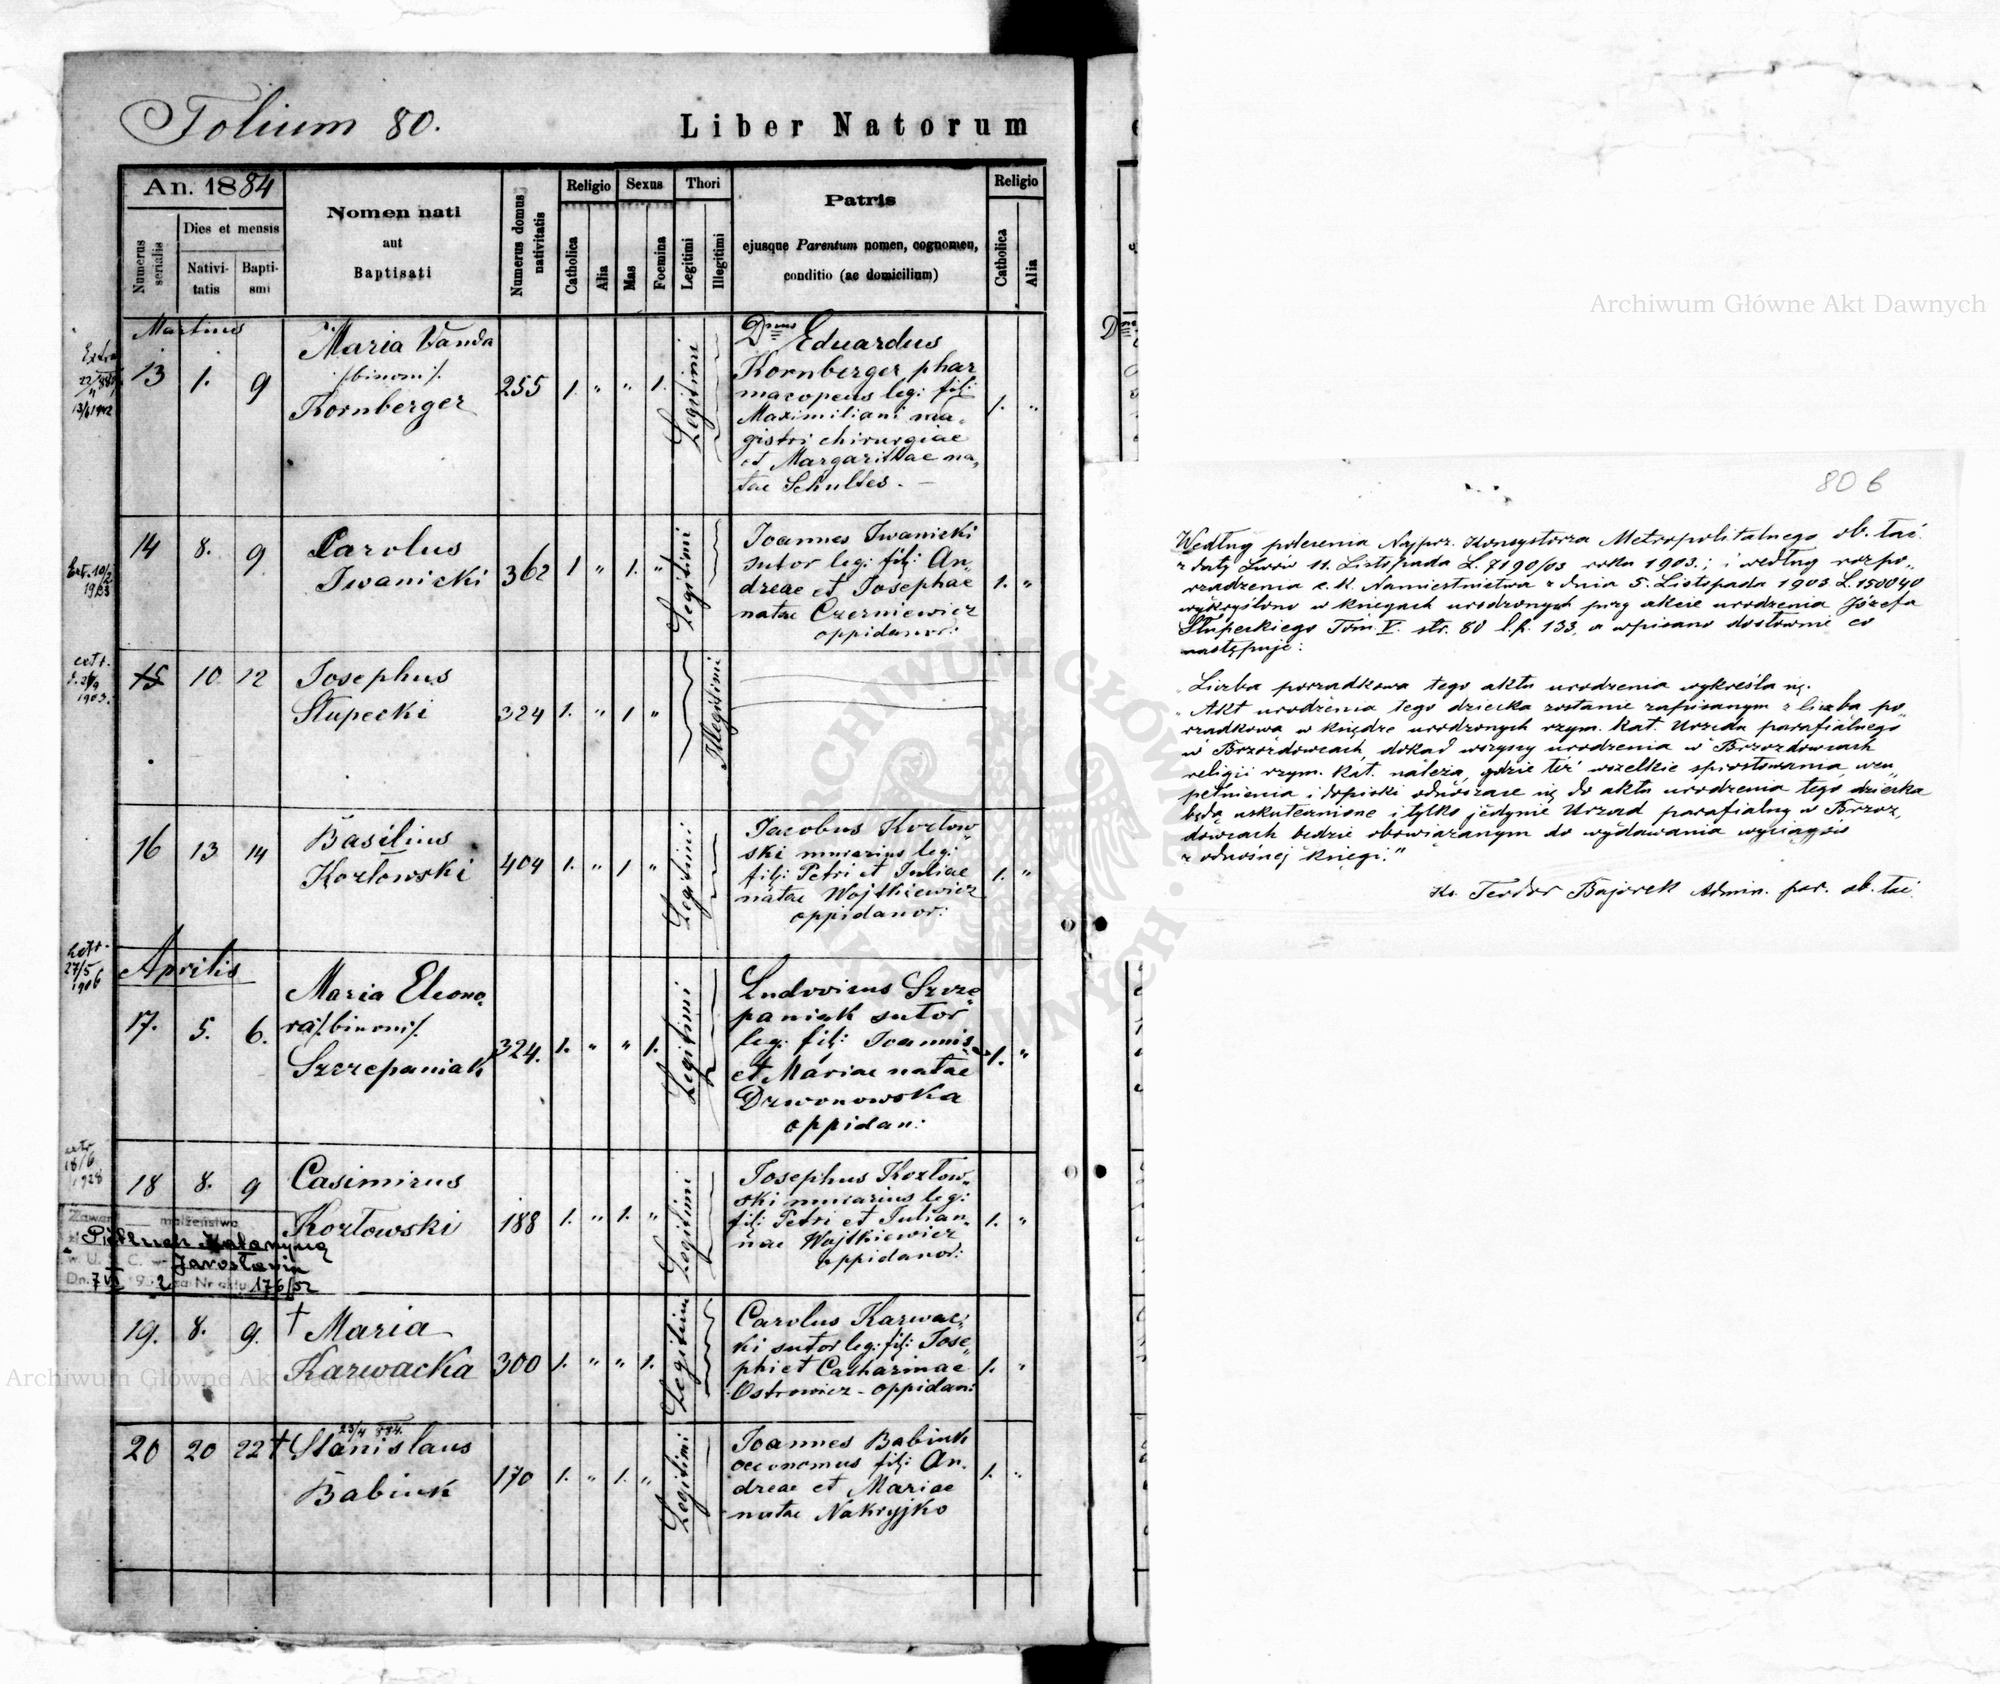 Folium 80.
Liber Natorum
An. 1884
Numerus serialis
Dies et mensis
Nativitatis
Baptismi
Nomen nati
ant
Baptisati
Numerus domus nativitatis
Religio
Catholica
Alia
Sexus
Mas
Foemina
Thori
Legitimi
Illegitimi
Patris
ejusque Parentum nomen, cognomen,
conditio (ac domicilium)
Religio
Catholica
Alia
Martius
13 1. 9
Maria Vanda
/:binom:/
Kornberger
255 1. " " 1. Legitimi
Dnus Eduardus
Kornberger phar
macopeus leg: fil:
Maximiliani ma„
gistri chirurgiae
et Margarithae na„
tae Schultes. —
1. "
Ext. 10/2
14 8. 9
Carolus
Iwanicki
362 1 " 1. " Legitimi
Ioannes Iwanicki
sutor leg: filj: An„
dreae et Josephae
natae Czerniewicz
oppidanor:
1. "
extr.
1903.
15 10 12
Josephus
Słupecki
324 1. " 1 " Illegitimi
16 13 14
Basilius
Kozłowski
404 1. " 1 " Legitimi
Jacobus Kozłow„
ski murarius leg:
filj: Petri et Juliae
natae Wojtkiewicz
oppidanor:
1. "
extr.
27/5
1906
Aprilis
17. 5. 6.
Maria Eleono„
ra /:binom:/
Szczepaniak
324. 1. " " 1. Legitimi
Ludovicus Szcze„
paniak sutor
leg. filj: Joannis
et Mariae natae
Dzwonowska
oppidan:
1. "
extr
18/6
1928
18 8. 9
Casimirus
Kozłowski
188 1. " 1. " Legitimi
Josephus Kozłow„
ski murarius leg:
filj: Petri et Julian„
nae Wojtkiewicz
oppidanor:
1. "
małżeństwo
Katarzyną
Jarosławiu
za Nr aktu 176/52
19. 8. 9.
† Maria
Karwacka
300 1. " " 1. Legitimi
Carolus Karwac„
ki sutor leg: filj: Jose„
phi et Catharinae
Ostrowicz - oppidan:
1. "
20 20 22
23/4 884.
† Stanislaus
Babiuk
170 1. " 1. " Legitimi
Joannes Babiuk
oeconomus filj: An„
dreae et Mariae
natae Nakryjko
1. "
80 b
Według polecenia Najprz. Konsystorza Metropolitalnego ob. łać.
z daty Lwów 11. Listopada L. 7190/03 roku 1903.; i według rozpo„
rządzenia c. k. Namiestnictwa z dnia 5. Listopada 1903. L. 150040
wykreślono w księgach urodzonych przy akcie urodzenia Józefa
Słupeckiego Tom. V. str. 80 l. p. 133, a wpisano dosłownie co
następuje:
„Liczba porządkowa tego aktu urodzenia wykreśla się.
„Akt urodzenia tego dziecka zostanie zapisanym z liczbą po„
rządkową w księdze urodzonych rzym. kat. Urzędu parafialnego
w Brzozdowcach, dokąd wszyscy urodzenia w Brzozdowcach
religii rzym. kat. należą, gdzie też wszelkie sprostowania, uzu„
pełnienia i dopiski odnoszące się do aktu urodzenia tego dziecka
będą uskutecznione i tylko jedynie Urząd parafialny w Brzoz„
dowcach będzie obowiązanym do wydawania wyciągów
z odnośnej księgi."
Ks. Teodor Bajorek Admin. par. ob. łać.
Archiwum Główne Akt Dawnych
Archiwum Główne Akt Dawnych